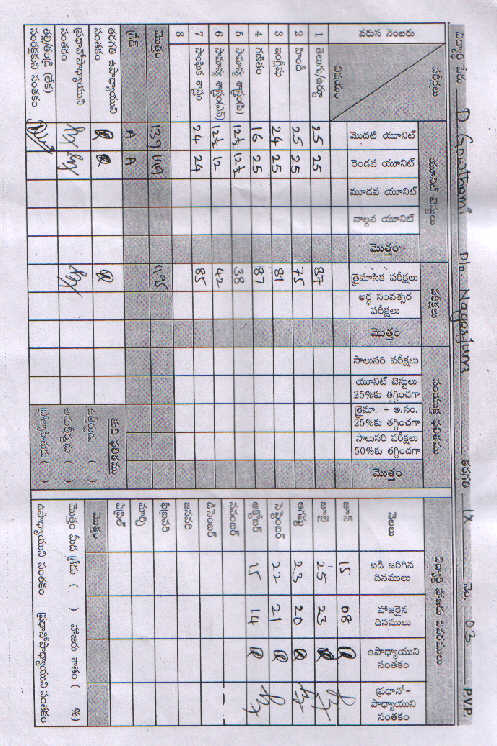 విద్యార్థి పేరు D. Swathami D/o Nagarjuna తరగతి IX నెం. 03 PVP.
వరుస నంబరు
విషయం
పరీక్షలు
యూనిట్ టెస్టులు
మొదటి యూనిట్
రెండవ యూనిట్
మూడవ యూనిట్
నాల్గవ యూనిట్
మొత్తం
త్రైమాసిక పరీక్షలు
అర్ధ సంవత్సర పరీక్షలు
మొత్తం
సాలుసరి పరీక్షలు
యూనిట్ టెస్టులు 25%కు తగ్గించగా
త్రైమా. - అ.సం. 25%కు తగ్గించగా
సాలుసరి పరీక్షలు 50%కు తగ్గించగా
మొత్తం
1 తెలుగు/ఉర్దూ 25 25 87
2 హిందీ 25 25 75
3 ఇంగ్లీషు 24 25 81
4 గణితం 16 25 87
5 సామాన్య శాస్త్రం 12½ 12½ 38
6 సామాన్య శాస్త్రం 12½ 12 42
7 సాంఘిక శాస్త్రం 24 24 85
8
మొత్తం 139
గ్రేడ్ A A
తరగతి ఉపాధ్యాయుని సంతకం
ప్రధానోపాధ్యాయుని సంతకం
తల్లి/తండ్రి (లేక) సంరక్షకుని సంతకం
తుది ఫలితము
నెలలు
బడి జరిగిన దినములు
హాజరైన దినములు
ఉపాధ్యాయుని సంతకం
ప్రధానో-పాధ్యాయుని సంతకం
జూన్ 15 08
జూలై 25 23
ఆగష్టు 23 20
సెప్టెంబర్ 22 21
అక్టోబర్ 15 14
నవంబర్
డిసెంబర్
జనవరి
ఫిబ్రవరి
మార్చి
ఏప్రిల్
మొత్తం
మొత్తం మీద గ్రేడు ( ) హాజరు శాతం ( %)
ఉపాధ్యాయుని సంతకం ప్రధానోపాధ్యాయుని సంతకం